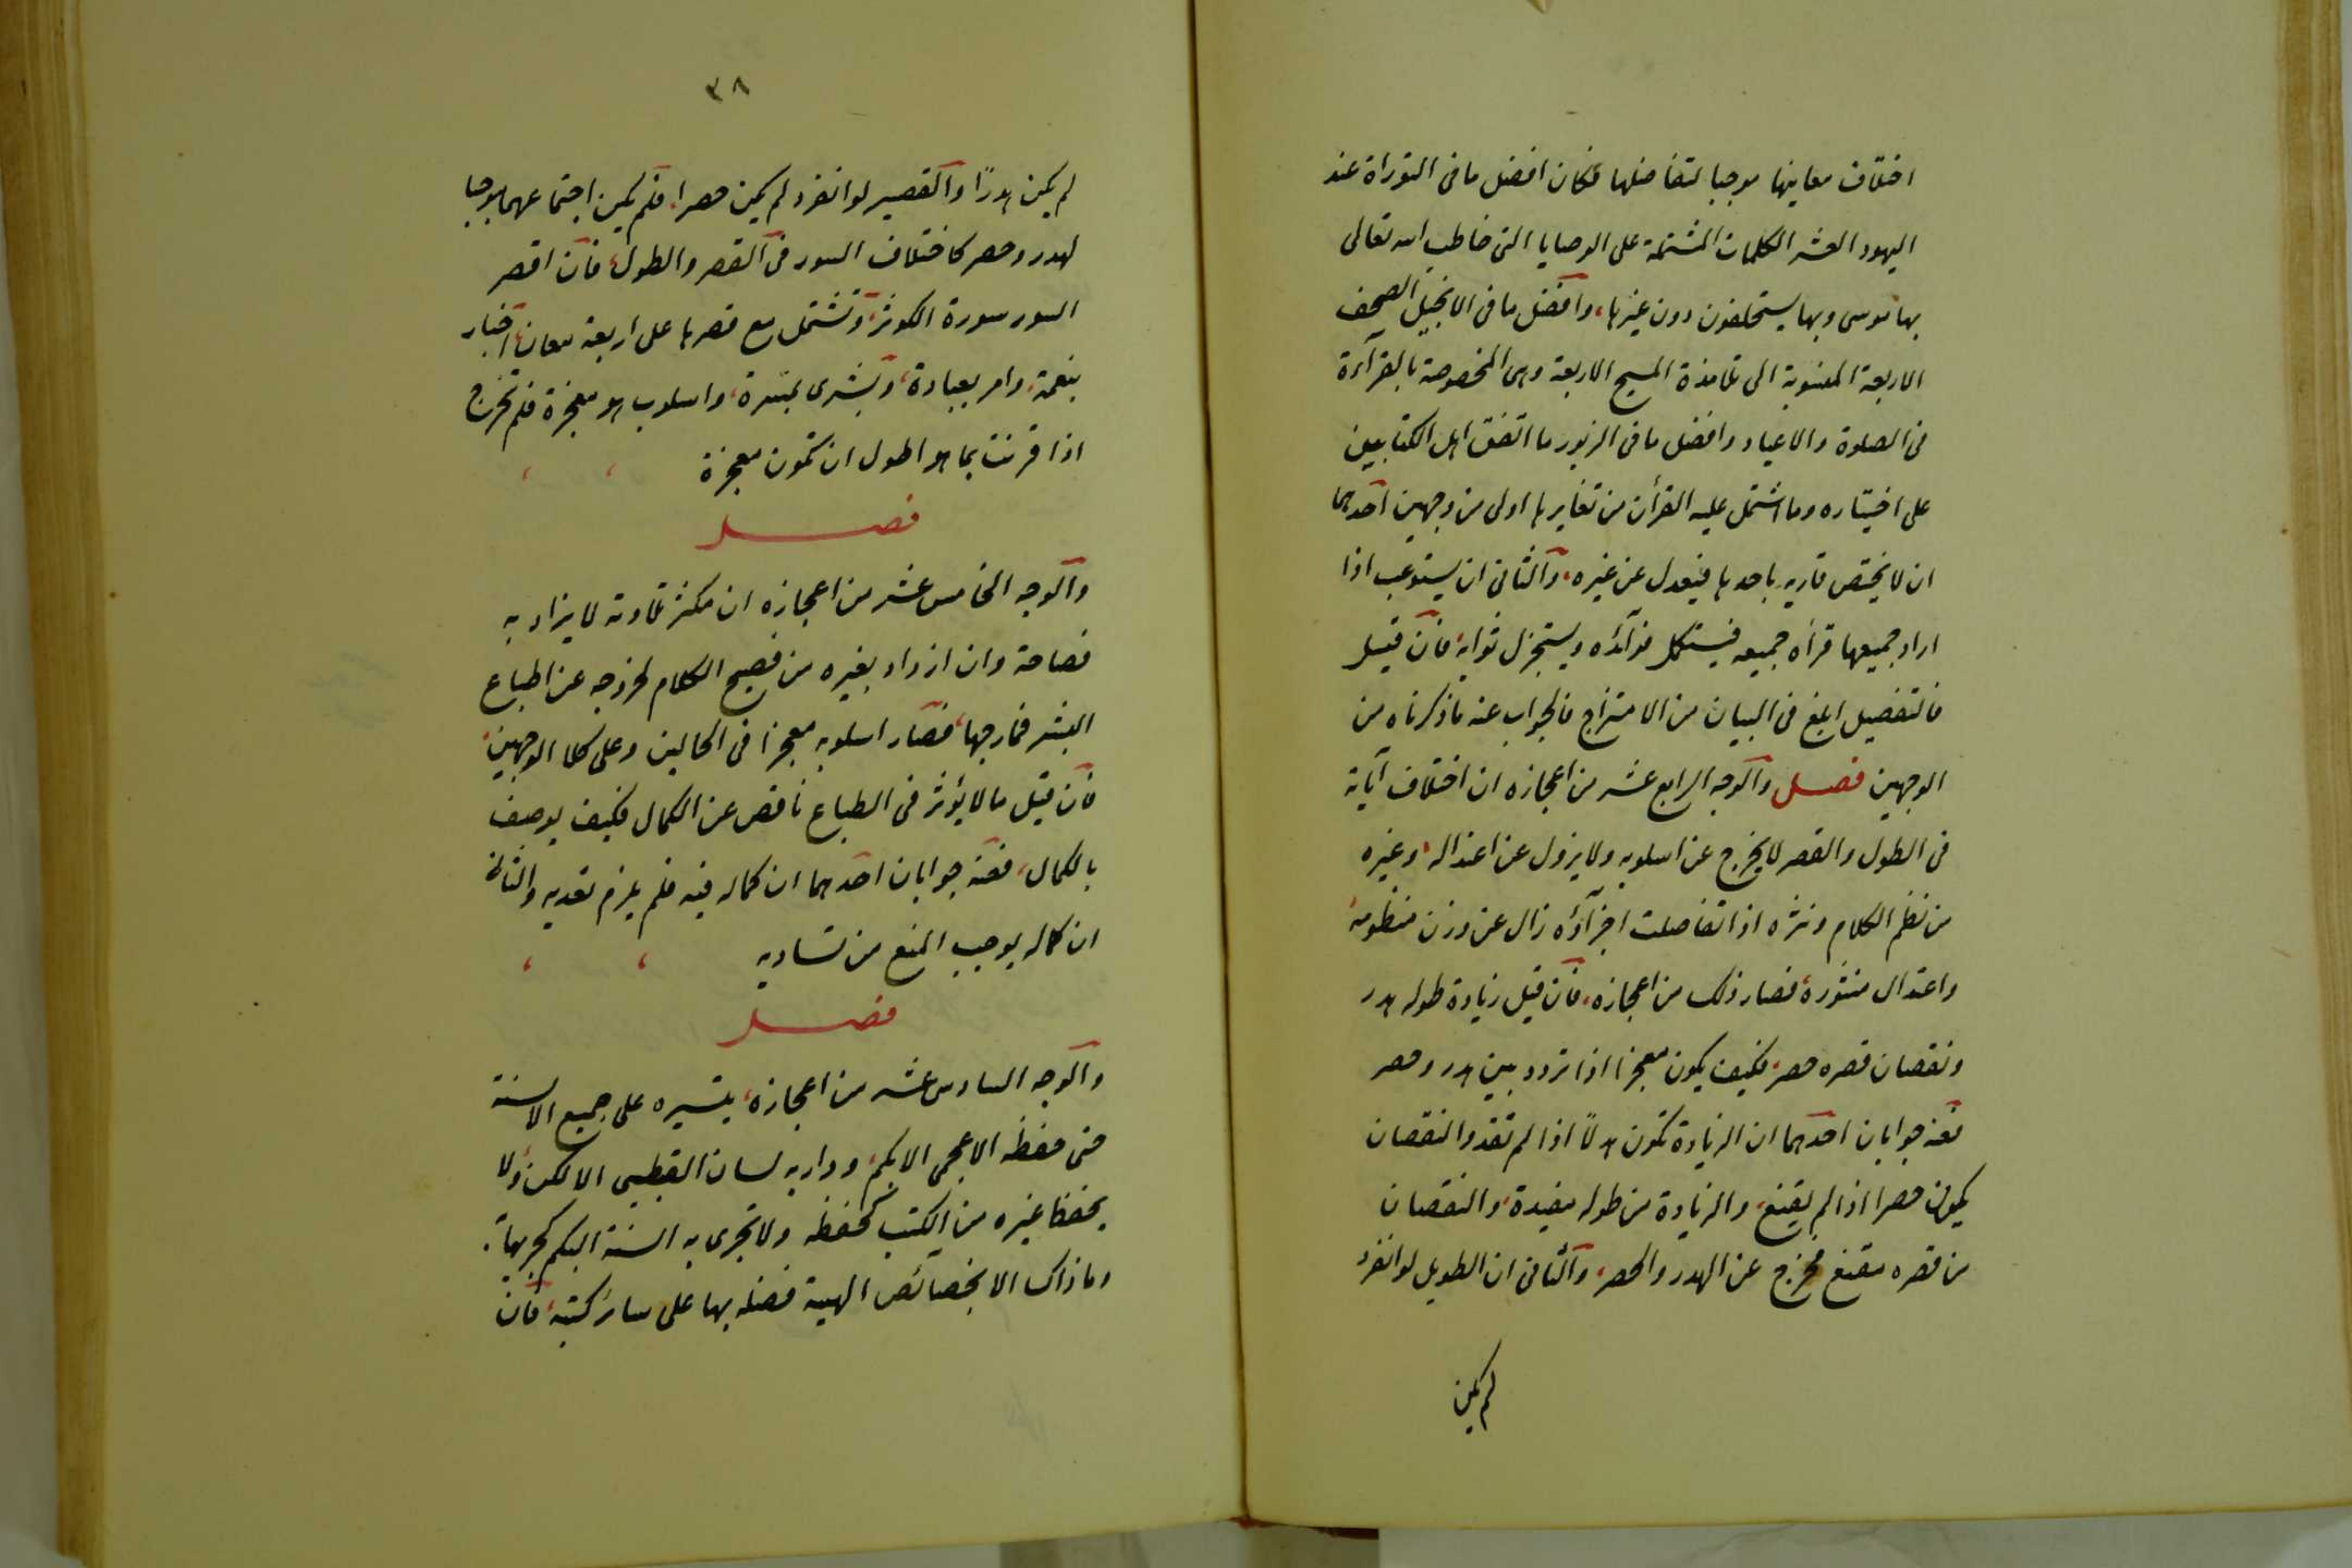 اختلاف معانيها موجبا لتفاضلها فكان افضل ما فى التوراة عند
اليهود العشر الكلمات المشتملة على الوصايا التى خاطب الله تعالى
بها موسى وبها يستحلفون دون غيرها، وافضل ما فى الانجيل الصحف
الاربعة المنسوبة الى تلامذة المسيح الاربعة وهى المخصوصة بالقرآءة
فى الصلوة والاعياد وافضل ما فى الزبور ما اتفق اهل الكتابين
على اختياره وما اشتمل عليه القرأن من تغايرها اولى من وجهين احدهما
ان لا يختص قاريه باحدها فيعدل عن غيره، والثانى ان يستوعب اذا
اراد جميعها قرأه جميعه فيستكمل فوآئده ويستجزل ثوابه، فان قيل
فالتفصيل ابلغ فى البيان من الامتزاج فالجواب عنه ما ذكرناه من
الوجهين فصل والوجه الرابع عشر من اعجازه ان اختلاف آياته
فى الطول والقصر لا يخرج عن اسلوبه ولا يزول عن اعتداله، وغيره
من نظم الكلام ونثره اذا تفاضلت اجزآؤه زال عن وزن منظومه،
واعتدال منثوره، فصار ذلك من اعجازه، فان قيل زيادة طوله هدر
ونقصان قصره حصر، فكيف يكون معجزا اذا تردد بين هدر وحصر
فعنه جوابان احدهما ان الزيادة تكون هدرًا اذا لم تفد والنقصان
يكون حصرا اذا لم يقنع، والزيادة من طوله مفيدة، والنقصان
من قصره مقنع فخرج عن الهدر والحصر، والثانى ان الطويل لو انفرد
لم يكن
٣٨
لم يكن هدرًا والقصير لو انفرد لم يكن حصرا، فلم يكن اجتماعهما موجبا
لهدر وحصر كاختلاف السور فى القصر والطول، فان اقصر
السور سورة الكوثر، وتشتمل مع قصرها على اربعة معان، اخبار
بنعمة، وامر بعبادة، وبشرى بمسرة، واسلوب هو معجزة فلم تخرج
اذا قرنت بما هو اطول ان تكون معجزة
فصل
والوجه الخامس عشر من اعجازه ان مكثر تلاوته لا يزاد به
فصاحة وان ازداد بغيره من فصيح الكلام لخروجه عن اطباع
البشر فمازجها، فصار اسلوبه معجزا فى الحالين وعلى كلا الوجهين،
فان قيل ما لا يؤثر فى الطباع ناقص عن الكمال فكيف يوصف
بالكمال، فعنه جوابان احدهما ان كماله فيه فلم يلزم تعديه والثانى
ان كماله يوجب المنع من تساويه
فصل
والوجه السادس عشر من اعجازه، تيسيره على جميع الالسنة
حتى حفظه الاعجمى الابكم، ودار به لسان القبطى الالكن، ولا
يحفظ غيره من الكتب كحفظه ولا تجرى به السنة البكم كجريها،
وما ذاك الا بخصائص الهية فضله بها على سائر كتبه، فان